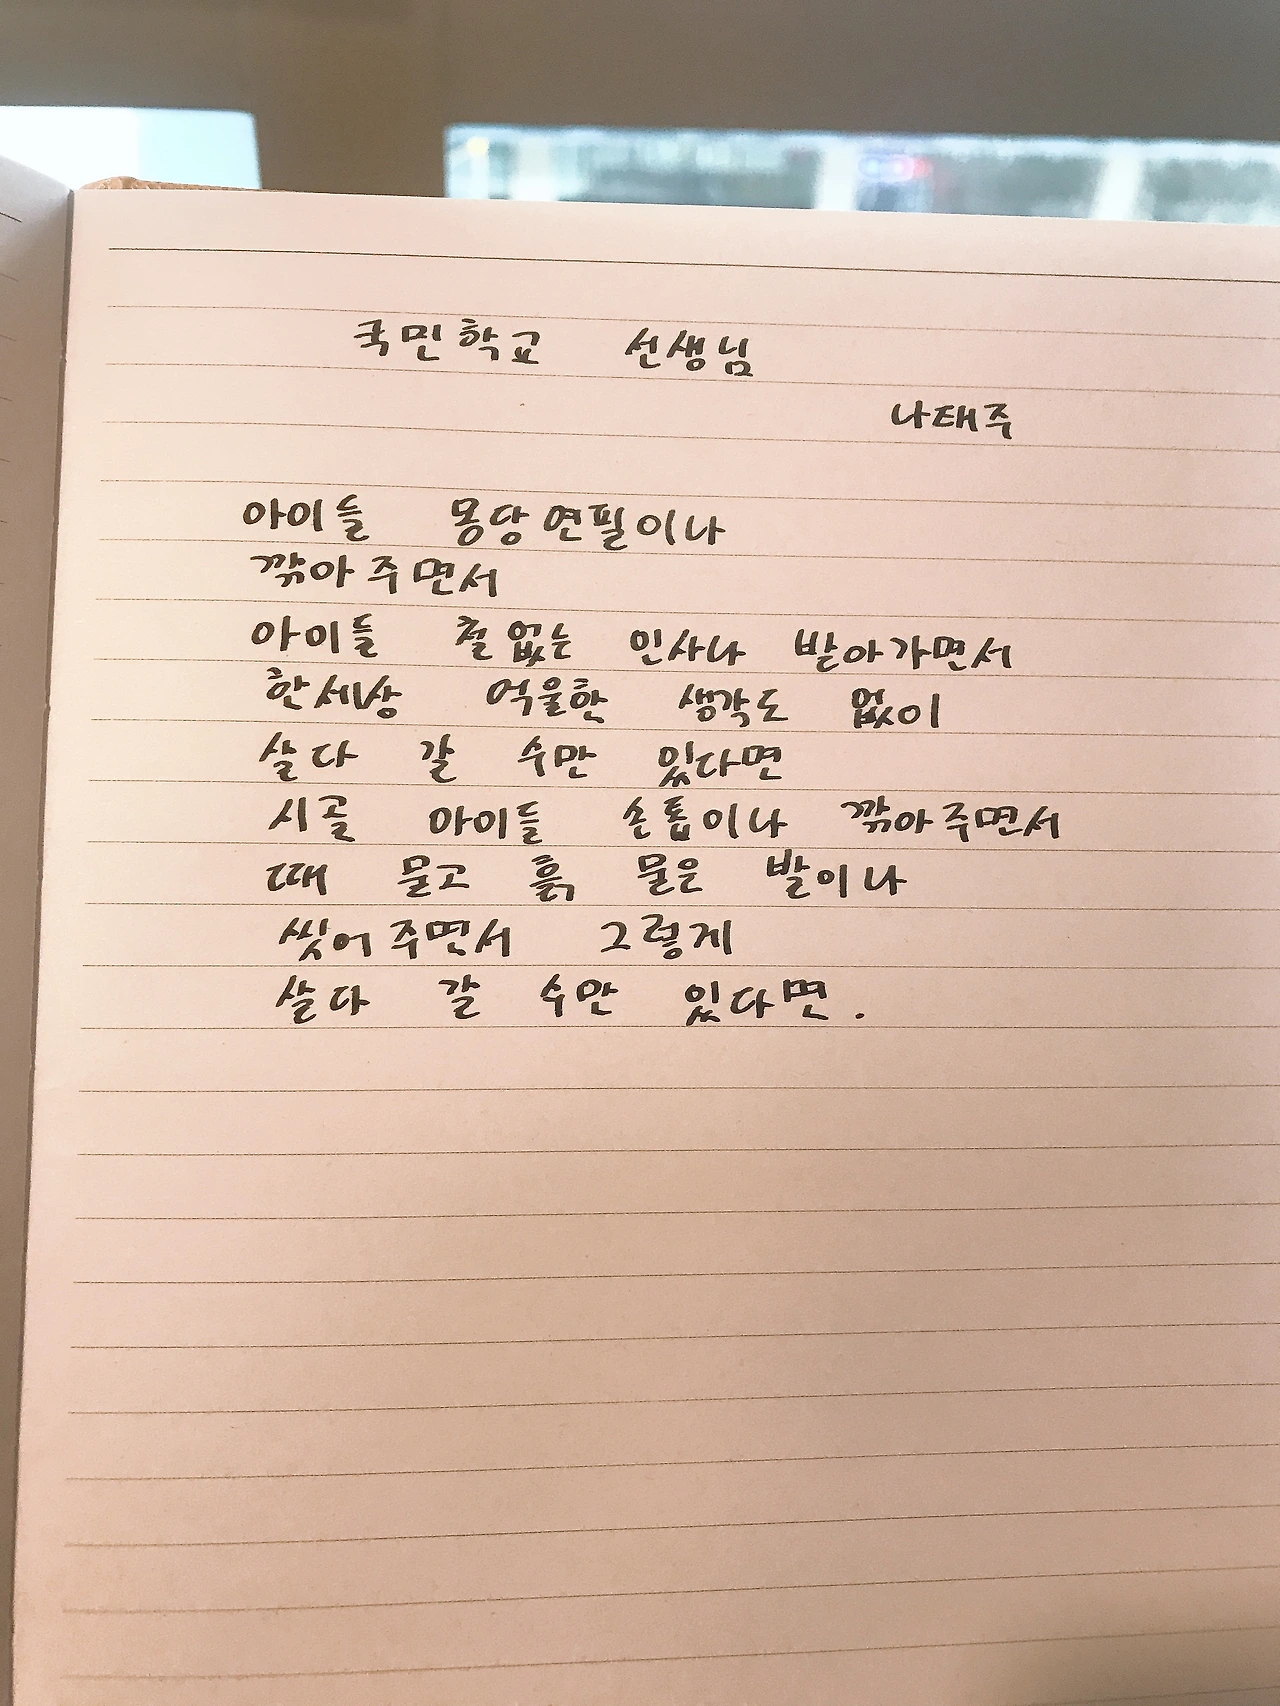 국민학교 선생님
나태주
아이들 몽당연필이나
깎아 주면서
아이들 철없는 인사나 받아가면서
한세상 억울한 생각도 없이
살다 갈 수만 있다면
시골 아이들 손톱이나 깎아주면서
때 묻고 흙 묻은 발이나
씻어 주면서 그렇게
살다 갈 수만 있다면.